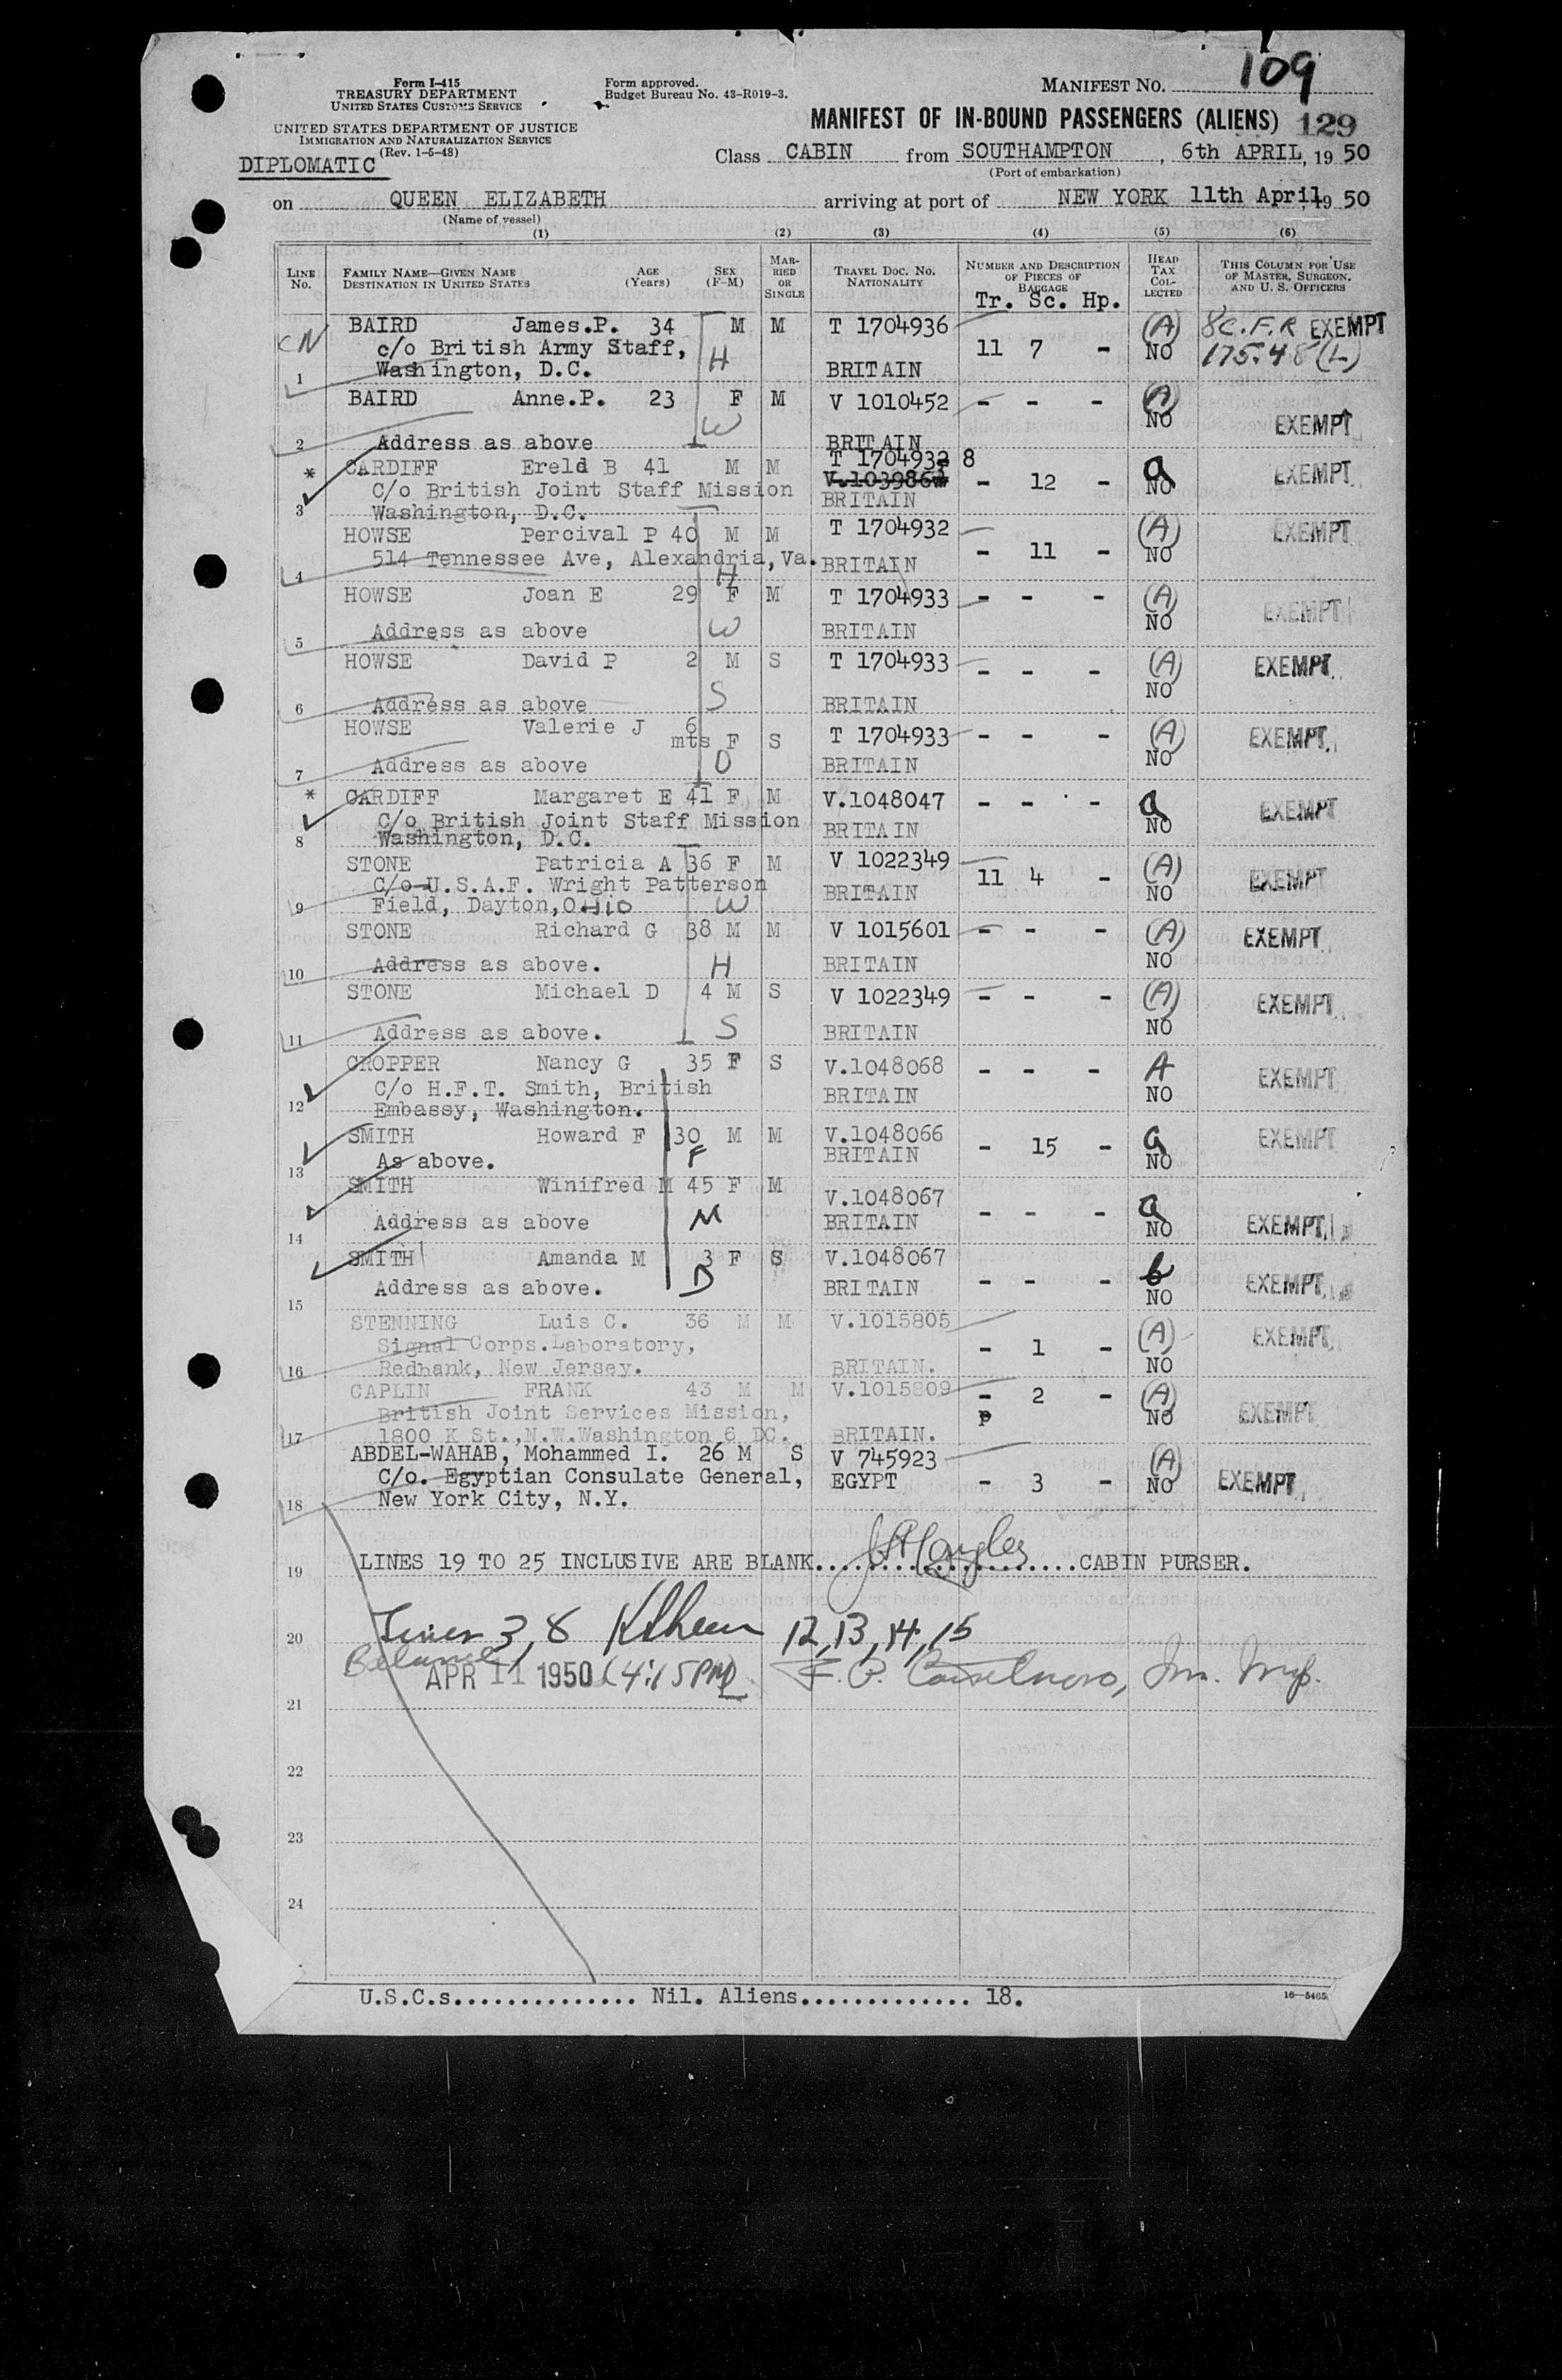 109
Form I-415
TREASURY DEPARTMENT
UNITED STATES CUSTOMS SERVICE
Form approved.
Budget Bureau No. 43-R019-3.
MANIFEST NO.
UNITED STATES DEPARTMENT OF JUSTICE
IMMIGRATION AND NATURALIZATION SERVICE
(Rev. 1-5-48)
MANIFEST OF IN-BOUND PASSENGERS (ALIENS) 129
DIPLOMATIC
Class CABIN from SOUTHAMPTON, 6th APRIL, 19 50
(Port of embarkation)
on QUEEN ELIZABETH arriving at port of NEW YORK 11th April, 19 50
(Name of vessel)
(1) (2) (3) (4) (5) (6)
LINE No. FAMILY NAME—GIVEN NAME DESTINATION IN UNITED STATES AGE (Years) SEX (F-M) MARRIED OR SINGLE TRAVEL DOC. NO. NATIONALITY NUMBER AND DESCRIPTION OF PIECES OF BAGGAGE HEAD TAX COLLECTED THIS COLUMN FOR USE OF MASTER, SURGEON, AND U. S. OFFICERS
Tr. Sc. Hp.
BAIRD James.P. 34 M M T 1704936 (A) 8 C.F.R EXEMPT
CN c/o British Army Staff, H 11 7 - NO 175.48(L)
1 Washington, D.C. BRITAIN
BAIRD Anne.P. 23 F M V 1010452 - - - (A) NO
W EXEMPT
2 Address as above BRITAIN
* CARDIFF Ereld B 41 M M T 1704932 8 a EXEMPT
C/o British Joint Staff Mission - 12 - NO
3 Washington, D.C. BRITAIN
HOWSE Percival P 40 M M T 1704932 (A) EXEMPT
4 514 Tennessee Ave, Alexandria, Va. H BRITAIN - 11 - NO
HOWSE Joan E 29 F M T 1704933 - - - (A) NO EXEMPT
5 Address as above W BRITAIN
HOWSE David P 2 M S T 1704933 - - - (A) NO EXEMPT
6 Address as above S BRITAIN
HOWSE Valerie J 6 mts F S T 1704933 - - - (A) NO EXEMPT
7 Address as above D BRITAIN
* CARDIFF Margaret E 41 F M V.1048047 - - - a NO EXEMPT
C/o British Joint Staff Mission BRITAIN
8 Washington, D.C.
STONE Patricia A 36 F M V 1022349 11 4 - (A) NO EXEMPT
C/o U.S.A.F. Wright Patterson BRITAIN
9 Field, Dayton, OHIO W
STONE Richard G 38 M M V 1015601 - - - (A) NO EXEMPT
10 Address as above. H BRITAIN
STONE Michael D 4 M S V 1022349 - - - (A) NO EXEMPT
11 Address as above. S BRITAIN
CROPPER Nancy G 35 F S V.1048068 - - - A NO EXEMPT
C/o H.F.T. Smith, British BRITAIN
12 Embassy, Washington.
SMITH Howard F 30 M M V.1048066 - 15 - a NO EXEMPT
13 As above. F BRITAIN
SMITH Winifred M 45 F M V.1048067 - - - a NO EXEMPT
14 Address as above M BRITAIN
SMITH Amanda M 3 F S V.1048067 - - - b NO EXEMPT
15 Address as above. D BRITAIN
STENNING Luis C. 36 M M V.1015805 - 1 - (A) NO EXEMPT
Signal Corps.Laboratory,
16 Redbank, New Jersey. BRITAIN.
CAPLIN FRANK 43 M M V.1015809 - 2 - (A) NO EXEMPT
British Joint Services Mission, p
17 1800 K St.,N.W.Washington 6 DC. BRITAIN.
ABDEL-WAHAB, Mohammed I. 26 M S V 745923 - 3 - (A) NO EXEMPT
C/o. Egyptian Consulate General, EGYPT
18 New York City, N.Y.
19 LINES 19 TO 25 INCLUSIVE ARE BLANK.........................CABIN PURSER.
20 Lines 3, 8 12, 13, 14, 15
Balance
APR 11 1950 (4:15PM)
21
22
23
24
U.S.C.s.............. Nil. Aliens............. 18.
16—5465